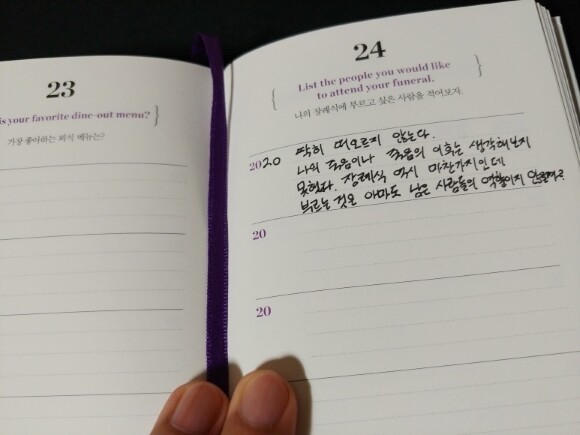 23
is your favorite dine-out menu?
가장 좋아하는 외식 메뉴는?
24
List the people you would like
to attend your funeral.
나의 장례식에 부르고 싶은 사람을 적어보자.
2020 딱히 떠오르지 않는다.
나의 죽음이나 죽음의 이후는 생각해보지
못했다. 장례식 역시 마찬가지인데
부르는 것은 아마도 남은 사람들의 역할이지 않을까?
20
20